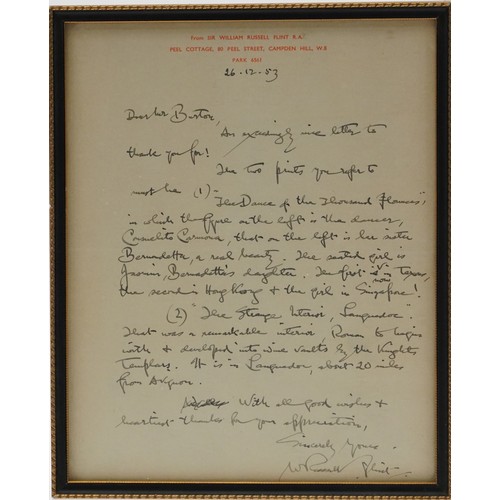 From SIR WILLIAM RUSSELL FLINT R.A.
PEEL COTTAGE, 80 PEEL STREET, CAMPDEN HILL, W.8
PARK
26.12.53
Dear Mr Burton,
An exceedingly nice letter to
thank you for!
The two prints you refer to
must be (1) "The Dance of the Thousand Flounces",
in which the figure on the left is the dancer,
Consuelito Carmona, that on the left is her sister
Bernadetta, a real beauty. The seated girl is
Jasmin, Bernadetta's daughter. The first is now in
the second in Hong Kong & the girl in Singapore!
(2) "The Strange Interior, Languedoc.
That was a remarkable interior, Roman to begin
with & developed into wine vaults by the Knights
Templars. It is in Languedoc, about 20 miles
from Avignon.
With all good wishes &
heartiest thanks for your appreciation,
Sincerely Yours.
W Russell Flint.